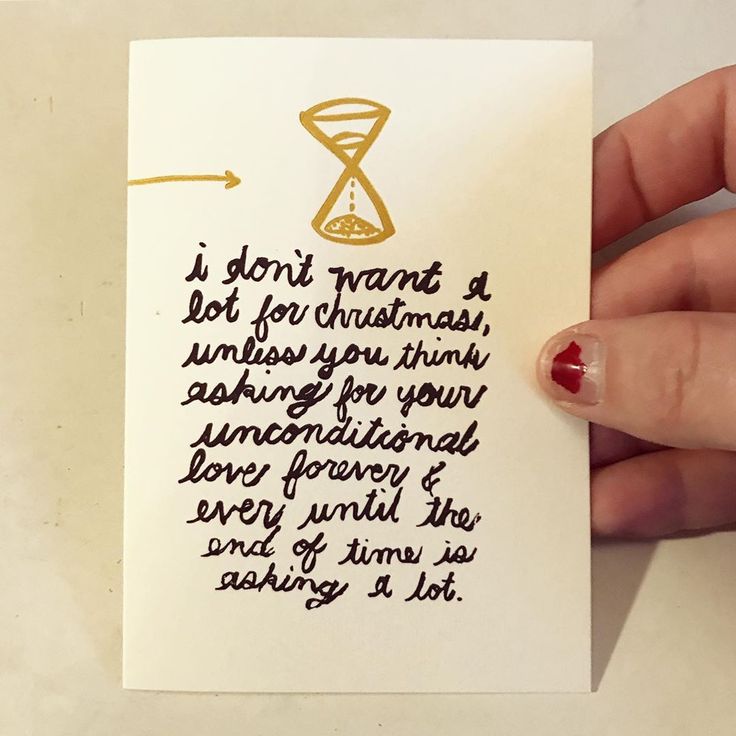 i don't want a
lot for christmas,
unless you think
asking for your
unconditional
love forever &
ever until the
end of time is
asking a lot.